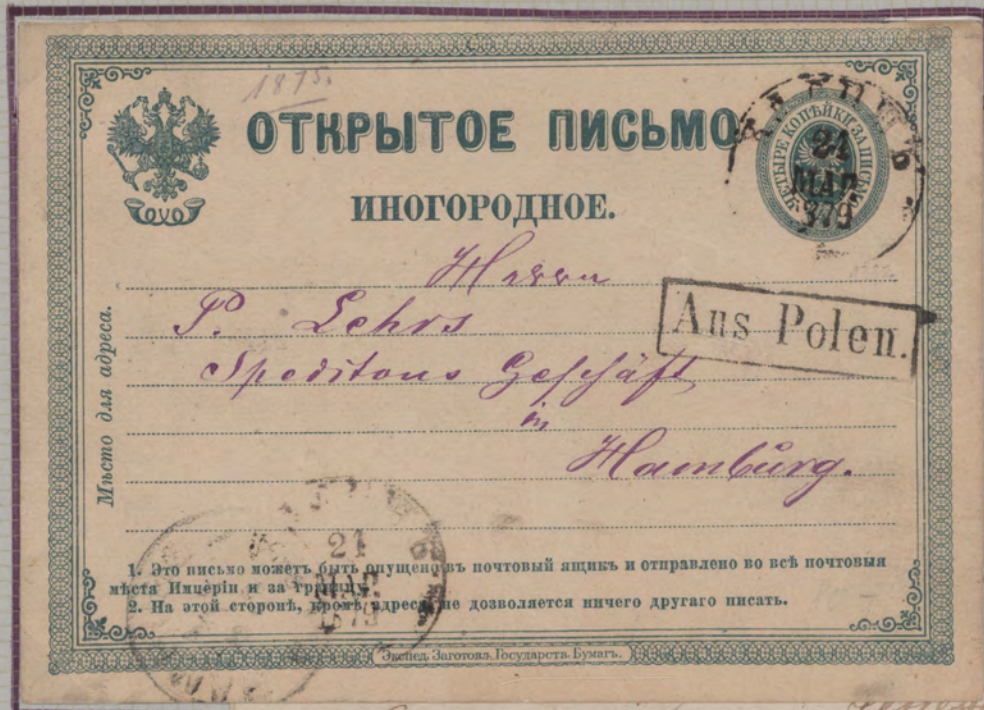 1875.
ОТКРЫТОЕ ПИСЬМО
ИНОГОРОДНОЕ.
ЧЕТЫРЕ КОПѢЙКИ ЗА ПИСЬМО
24
МАР
379
Herrn
P. Lehrs
Aus Polen.
Speditons Geschäft
in
Hamburg.
Мѣсто для адреса.
21
МАР
1879
1. Это письмо можетъ быть опущено въ почтовый ящикъ и отправлено во всѣ почтовыя
мѣста Имперіи и за границу.
2. На этой сторонѣ, кромѣ адреса, не дозволяется ничего другаго писать.
Экспед. Заготовл. Государств. Бумагъ.